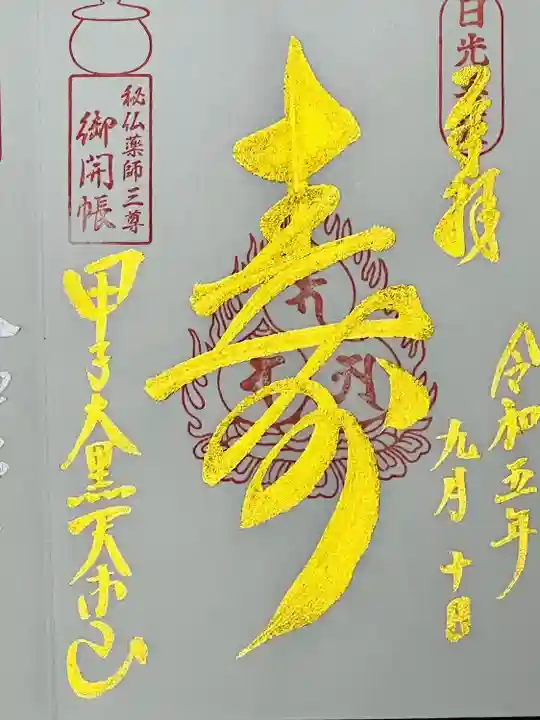 奉拝
令和五年
九月十日
寿
秘仏薬師三尊
御開帳
甲子大黒天本山